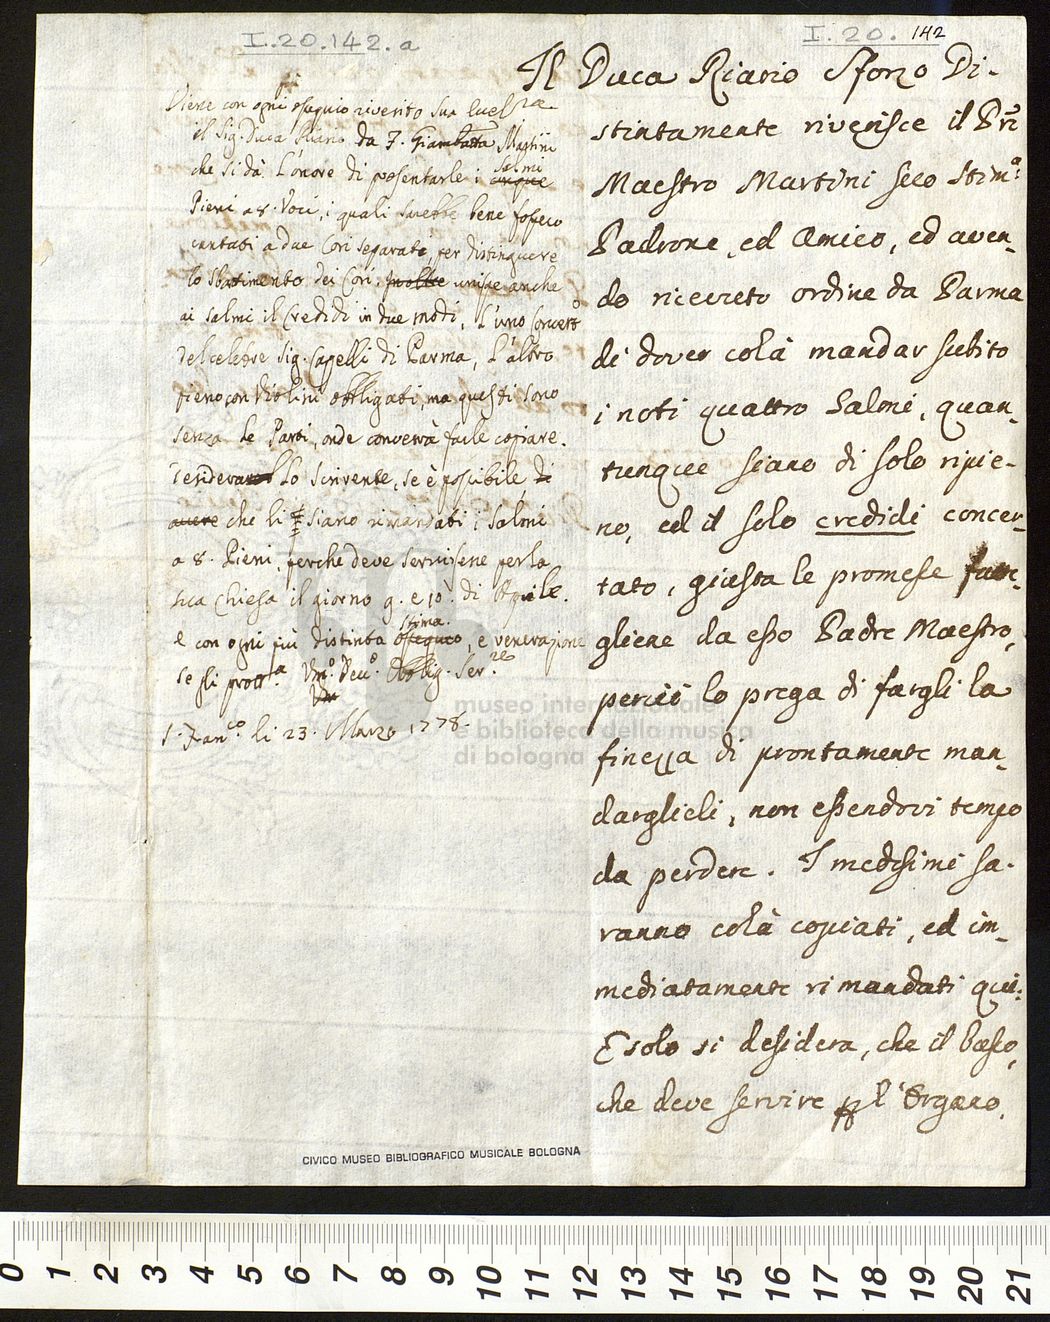 I.20.142.a
I. 20. 142
Viene con ogni ossequio riverito Sua Eccellza
il Sig. Duca Riario da F. Giambatta Martini
che si dà l'onore di presentarle i cinque Salmi
Pieni a 8. Voci, i quali sarebbe bene fossero
cantati a due Cori separati, per distinguere
lo sbattimento dei Cori; inoltre unisce anche
ai Salmi il Credidi in due modi, l'uno Concertto
del celebre Sig. Capelli di Parma, l'altro
pieno con Violini obbligati, ma questi sono
senza le Parti, onde converrà farle copiare.
Desidera lo scrivente, se è possibile, di
avere che li siano rimandati i Salmi
a 8. Pieni, perche deve servirsene per la
sua Chiesa il giorno 9. e 10. di Aprile.
e con ogni più distinta ossequio stima. e venerazione
se gli protta Umo. Devo. Obblig. Serre
S. Franco. li 23. Marzo 1778.
Il Duca Riario Sforza Di-
stintamente riverisce il Pre
Maestro Martini seco Stimo.
Padrone, ed Amico, ed aven-
do ricevuto ordine da Parma
di dover colà mandar subito
i noti quattro Salmi, quan-
tunque siano di solo ripie-
no, ed il solo credidi concer-
tato, giusta le promesse fatte-
gliene da esso Padre Maestro,
perciò lo prega di fargli la
finezza di prontamente man-
darglieli, non essendovi tempo
da perdere. I medesimi sa-
ranno colà copiati, ed im-
mediatamente rimandati qui.
E solo si desidera, che il basso,
che deve servire p l'Organo,
museo internazionale
e biblioteca della musica
di bologna
CIVICO MUSEO BIBLIOGRAFICO MUSICALE BOLOGNA
0 1 2 3 4 5 6 7 8 9 10 11 12 13 14 15 16 17 18 19 20 21